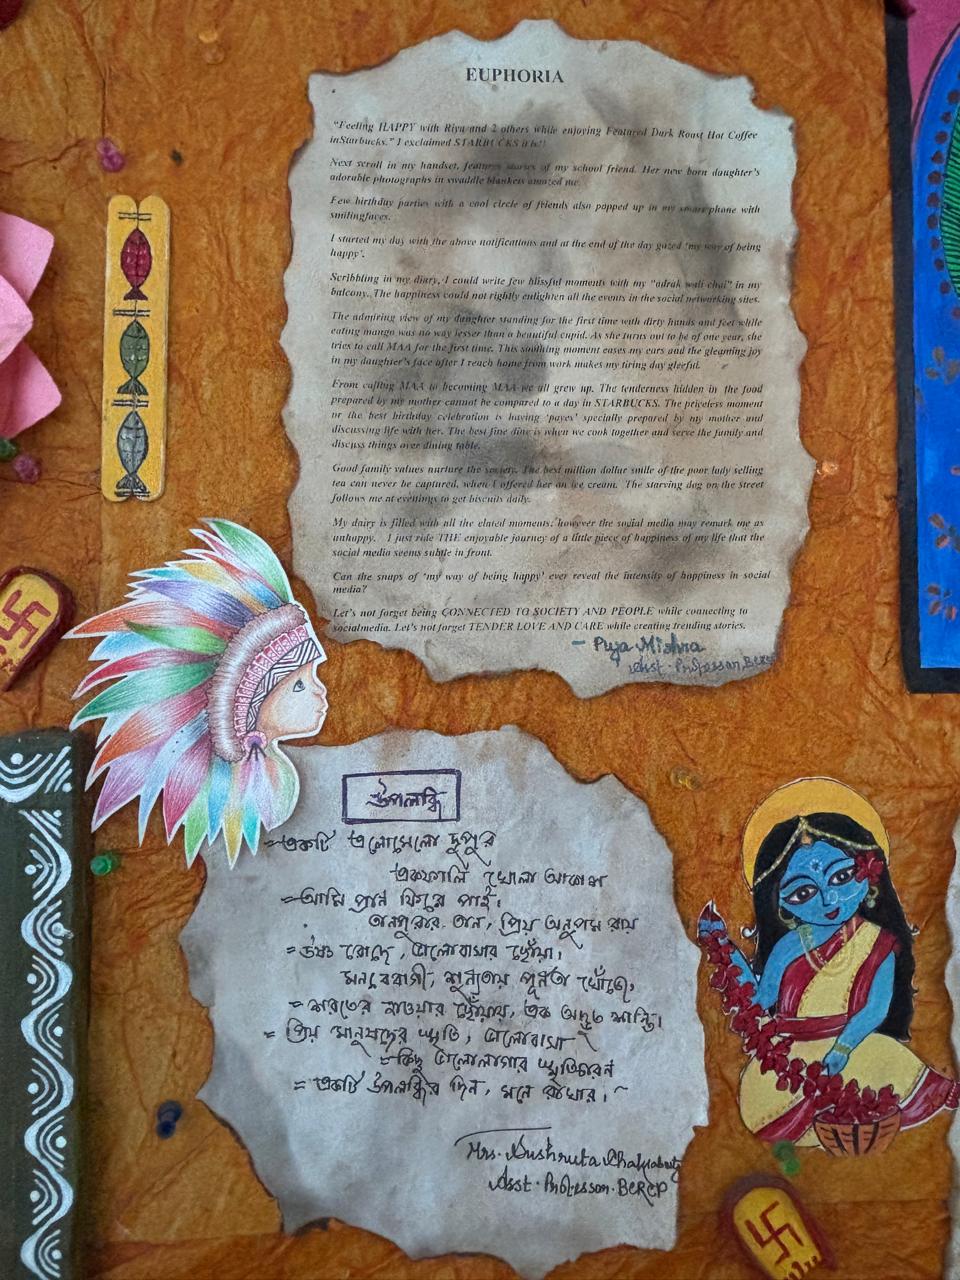 EUPHORIA
"Feeling HAPPY with Riya and 2 others while enjoying Featured Dark Roast Hot Coffee
inStarbucks." I exclaimed STARBUCKS it is!!
Next scroll in my handset, features stories of my school friend. Her new born daughter's
adorable photographs in swaddle blankets amazed me.
Few birthday parties with a cool circle of friends also popped up in my smartphone with
smilingfaces.
I started my day with the above notifications and at the end of the day gazed 'my way of being
happy'.
Scribbling in my diary, I could write few blissful moments with my "adrak wali chai" in my
balcony. The happiness could not rightly enlighten all the events in the social networking sites.
The admiring view of my daughter standing for the first time with dirty hands and feet while
eating mango was no way lesser than a beautiful cupid. As she turns out to be of one year, she
tries to call MAA for the first time. This soothing moment eases my ears and the gleaming joy
in my daughter's face after I reach home from work makes my tiring day gleeful.
From calling MAA to becoming MAA we all grew up. The tenderness hidden in the food
prepared by my mother cannot be compared to a day in STARBUCKS. The priceless moment
or the best birthday celebration is having 'payes' specially prepared by my mother and
discussing life with her. The best fine dine is when we cook together and serve the family and
discuss things over dining table.
Good family values nurture the society. The best million dollar smile of the poor lady selling
tea can never be captured, when I offered her an ice cream. The starving dog on the street
follows me at evenings to get biscuits daily.
My dairy is filled with all the elated moments; however the social media may remark me as
unhappy. I just ride THE enjoyable journey of a little piece of happiness of my life that the
social media seems subtle in front.
Can the snaps of 'my way of being happy' ever reveal the intensity of happiness in social
media?
Let's not forget being CONNECTED TO SOCIETY AND PEOPLE while connecting to
socialmedia. Let's not forget TENDER LOVE AND CARE while creating trending stories.
- Puja Mishra
Asst. Professor, BCRCP
উপলব্ধি
একটি এলোমেলো দুপুর
একফালি খোলা আকাশ
আমি প্রান ফিরে পাই,
তানপুরার তান, প্রিয় অনুপম রায়
উষ্ণ রোদে, ভালোবাসার ছোঁয়া,
মনবৈরাগী, শুন্যতায় পূর্নতা খোঁজে,
শরতের হাওয়ার ছোঁয়ায়, এক অদ্ভুত শান্তি,
প্রিয় মানুষদের স্মৃতি, ভালোবাসা
কিছু ভালোলাগার স্মৃতিচারন
একটি উপলব্ধির দিন, মনে রাখার।
Mrs. Sushruta Chakraborty
Asst. Professor. BCRCP